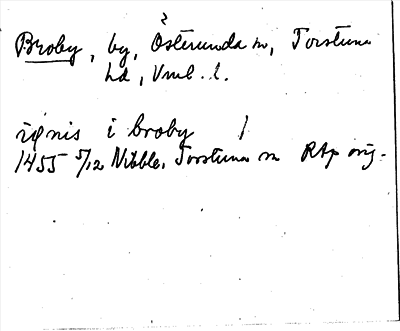 Broby, by, Österunda sn, Torstuna
hd, Vml. l.
ignis i broby
1455 5/12 Nibble, Torstuna sn RAp orig.